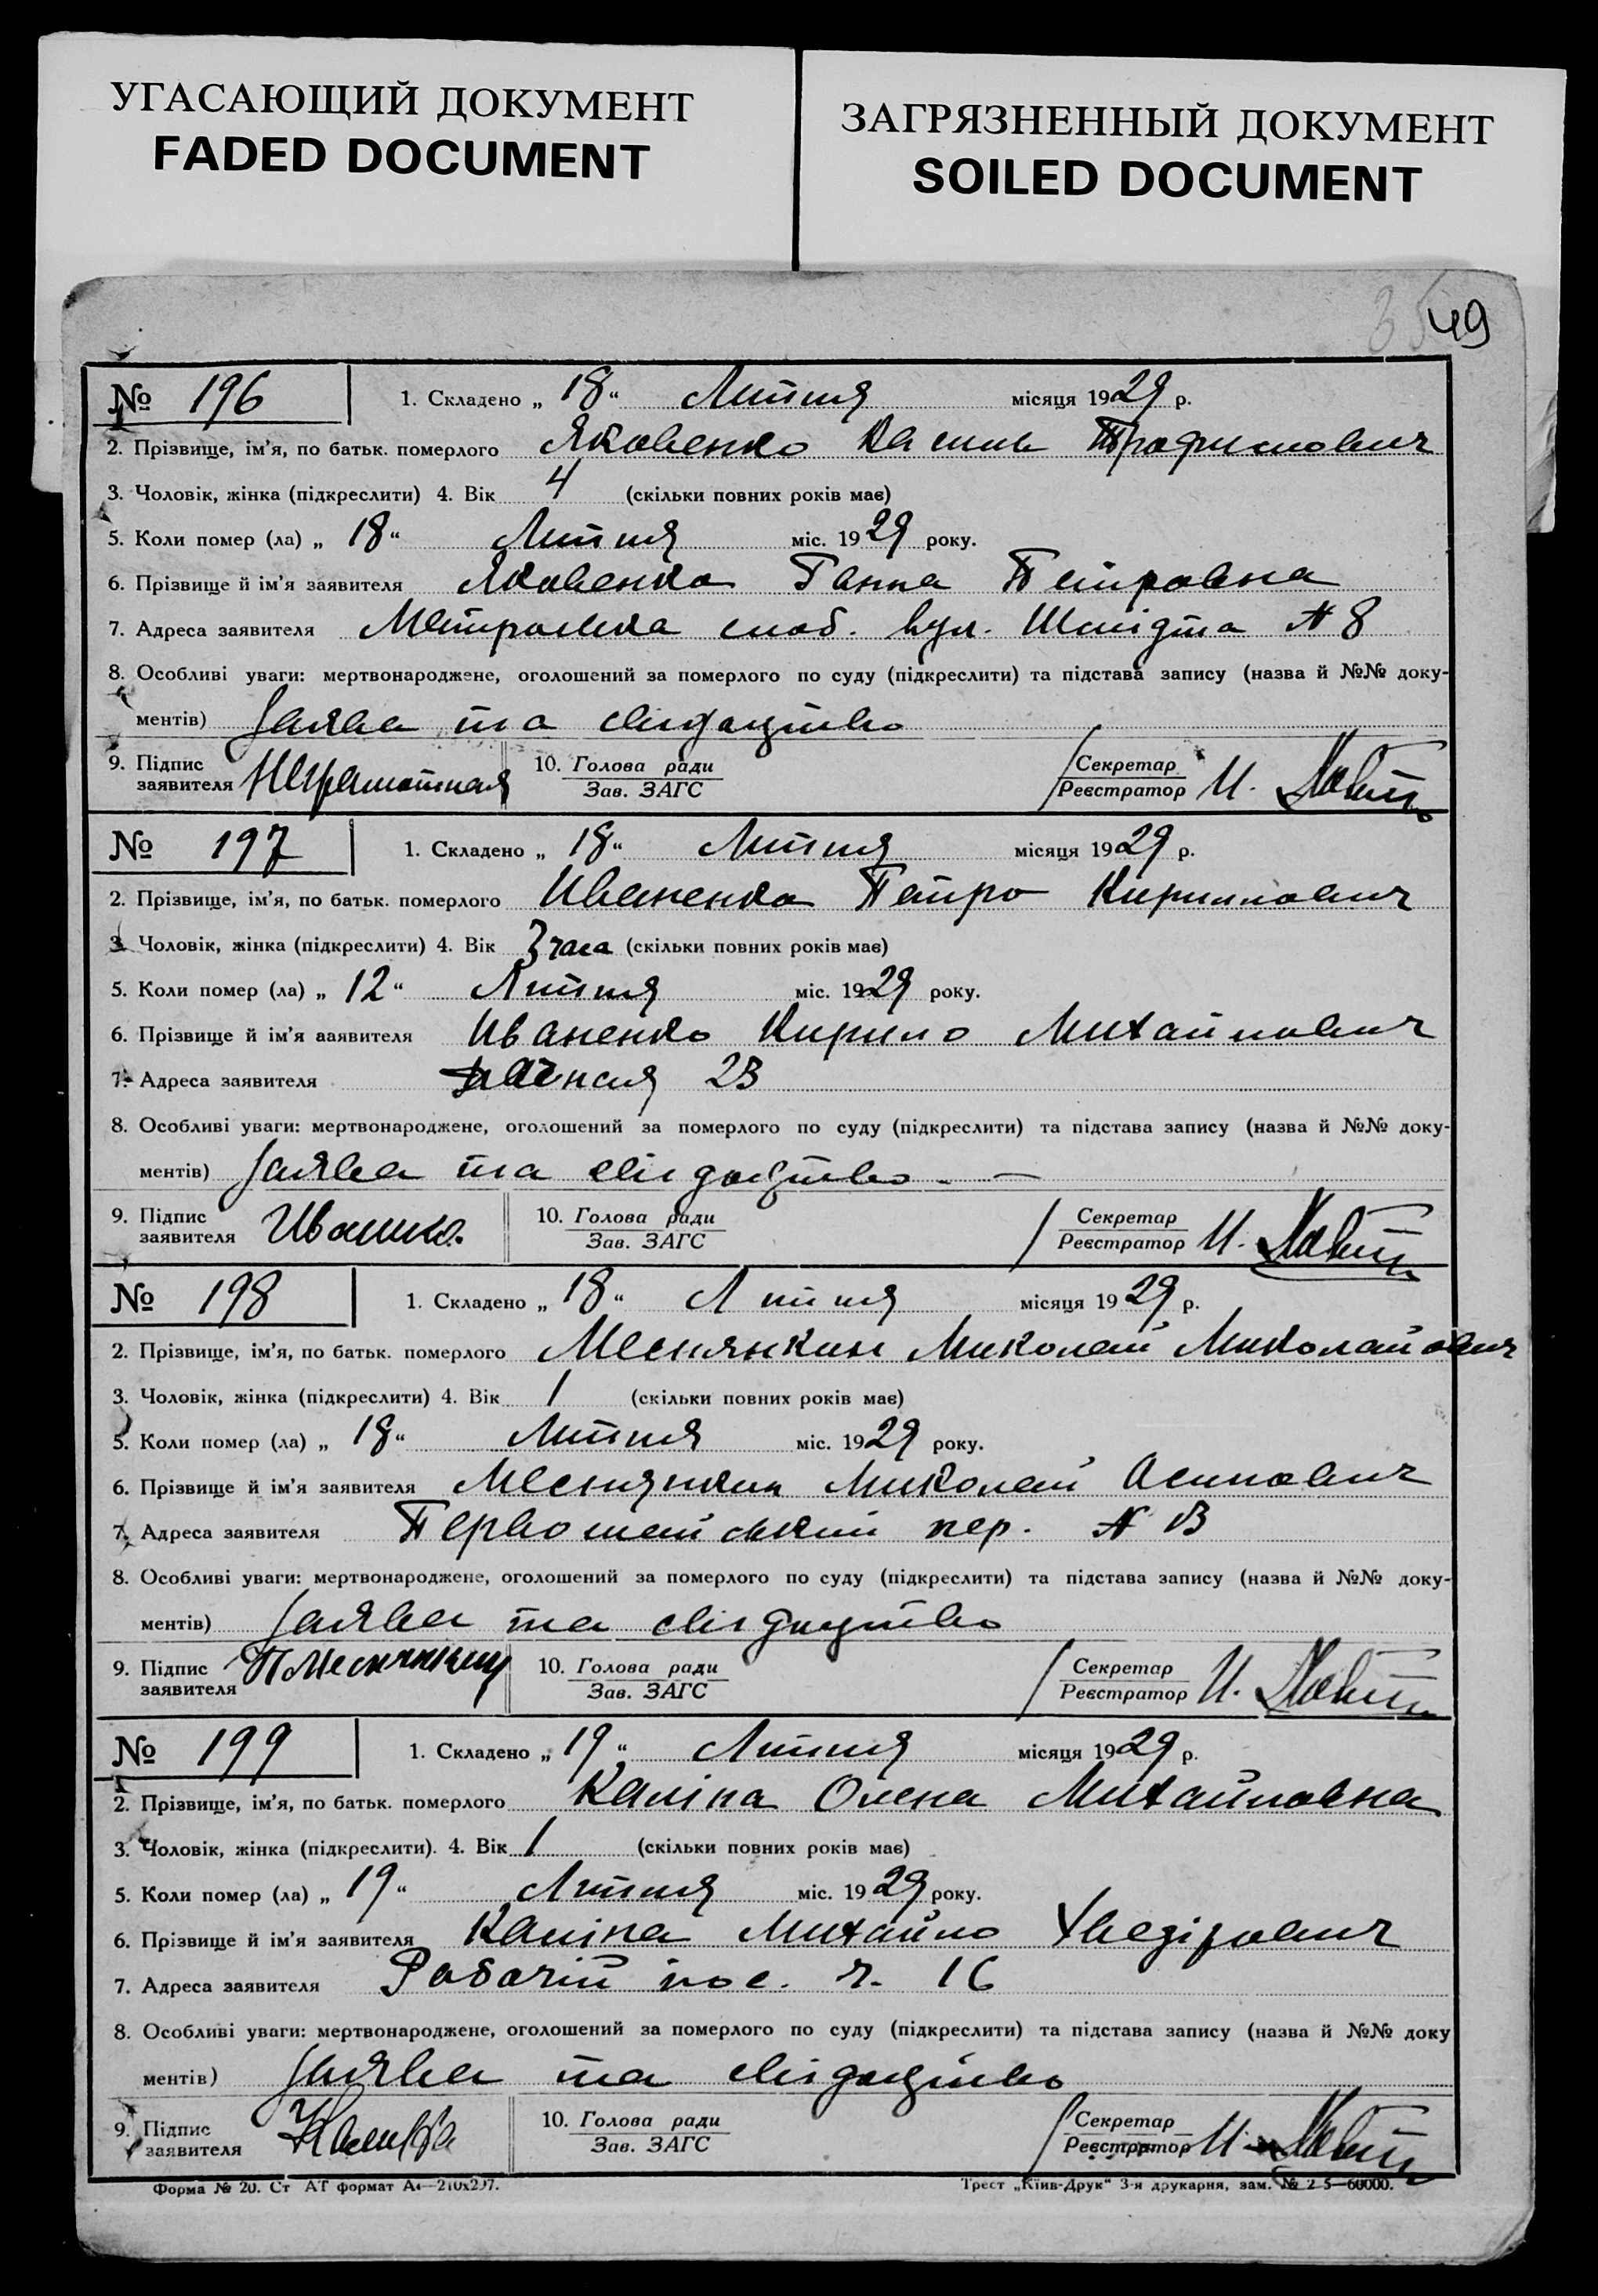 УГАСАЮЩИЙ ДОКУМЕНТ
FADED DOCUMENT
ЗАГРЯЗНЕННЫЙ ДОКУМЕНТ
SOILED DOCUMENT
49
№ 196 1. Складено „ 18 “ Липня місяця 1929 р.
2. Прізвище, ім’я, по батьк. померлого Яковенко Трофимович
3. Чоловік, жінка (підкреслити) 4. Вік 4 (скільки повних років має)
5. Коли помер (ла) „ 18 “ Липня міс. 1929 року.
6. Прізвище й ім’я заявителя Яковенко Ганна Петровна
7. Адреса заявителя слоб. вул. Шмідта № 8
8. Особливі уваги: мертвонароджене, оголошений за померлого по суду (підкреслити) та підстава запису (назва й №№ доку-
ментів) Заява та свідоцтво
9. Підпис заявителя Неграмотная 10. Голова ради Зав. ЗАГС Секретар Реєстратор И.
№ 197 1. Складено „ 18 “ Липня місяця 1929 р.
2. Прізвище, ім’я, по батьк. померлого Иваненко Петро Кирилович
3. Чоловік, жінка (підкреслити) 4. Вік 3 часа (скільки повних років має)
5. Коли помер (ла) „ 12 “ Липня міс. 1929 року.
6. Прізвище й ім’я заявителя Иваненко Кирило Михайлович
7. Адреса заявителя 23
8. Особливі уваги: мертвонароджене, оголошений за померлого по суду (підкреслити) та підстава запису (назва й №№ доку-
ментів) Заява та свідоцтво
9. Підпис заявителя 10. Голова ради Зав. ЗАГС Секретар Реєстратор И.
№ 198 1. Складено „ 18 “ Липня місяця 1929 р.
2. Прізвище, ім’я, по батьк. померлого Меснянкин Миколай Миколайович
3. Чоловік, жінка (підкреслити) 4. Вік 1 (скільки повних років має)
5. Коли помер (ла) „ 18 “ Липня міс. 1929 року.
6. Прізвище й ім’я заявителя Меснянкин Миколай Осипович
7. Адреса заявителя Первомайський пер. №
8. Особливі уваги: мертвонароджене, оголошений за померлого по суду (підкреслити) та підстава запису (назва й №№ доку-
ментів) Заява та свідоцтво
9. Підпис заявителя 10. Голова ради Зав. ЗАГС Секретар Реєстратор И.
№ 199 1. Складено „ 19 “ Липня місяця 1929 р.
2. Прізвище, ім’я, по батьк. померлого Каліна Олена Михайловна
3. Чоловік, жінка (підкреслити). 4. Вік 1 (скільки повних років має)
5. Коли помер (ла) „ 19 “ Липня міс. 1929 року.
6. Прізвище й ім’я заявителя Каліна Михайло Хведірович
7. Адреса заявителя Рабочій пос. ч. 16
8. Особливі уваги: мертвонароджене, оголошений за померлого по суду (підкреслити) та підстава запису (назва й №№ доку
ментів) Заява та свідоцтво
9. Підпис заявителя 10. Голова ради Зав. ЗАГС Секретар Реєстратор И.
Форма № 20. Ст АТ формат А4—210х297. Трест „Київ-Друк“ 3-я друкарня, зам. 60000.